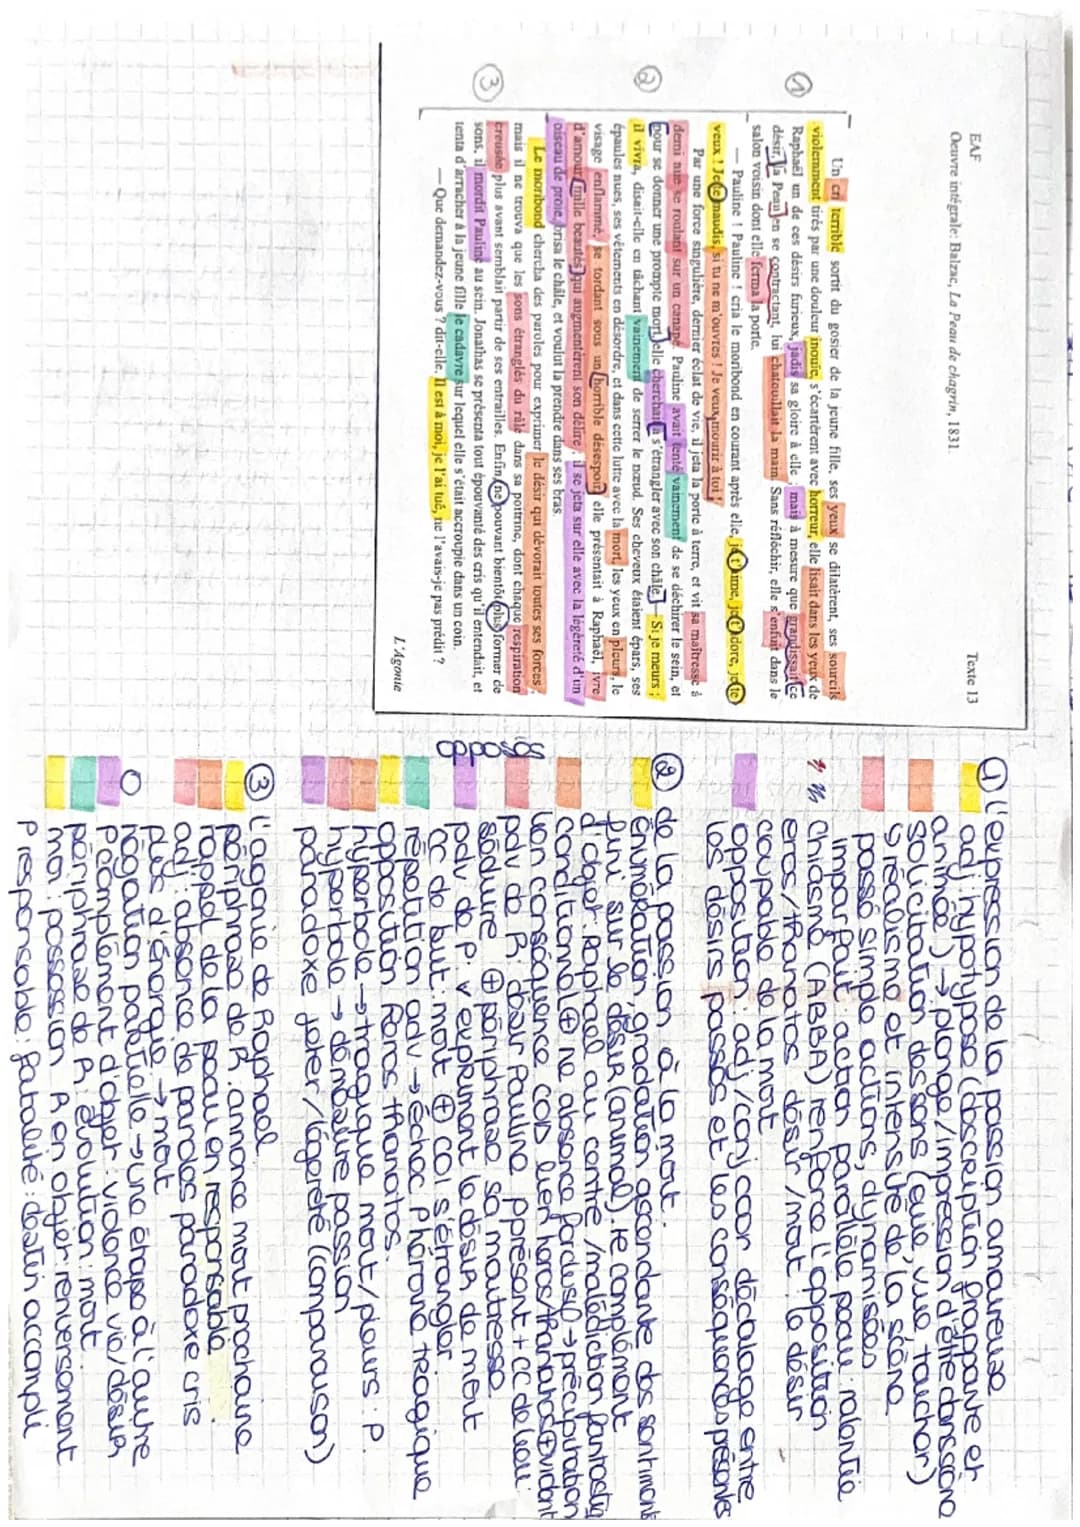 EAF
Texte 13
Oeuvre intégrale: Balzac, La Peau de chagrin, 1831.
①
Un cri terrible sortit du gosier de la jeune fille, ses yeux se dilatèrent, ses sourcils
violemment tirés par une douleur inouïe, s'écartèrent avec horreur, elle lisait dans les yeux de
Raphaël un de ces désirs furieux, jadis sa gloire à elle ; mais à mesure que grandissait ce
désir, la Peau en se contractant, lui chatouillait la main. Sans réfléchir, elle s'enfuit dans le
salon voisin dont elle ferma la porte.
②
— Pauline ! Pauline ! cria le moribond en courant après elle, je t'aime, je t'adore, je te
veux ! Je te maudis, si tu ne m'ouvres ! Je veux mourir à toi !
Par une force singulière, dernier éclat de vie, il jeta la porte à terre, et vit sa maîtresse à
demi nue se roulant sur un canapé. Pauline avait tenté vainement de se déchirer le sein, et
pour se donner une prompte mort, elle cherchait à s'étrangler avec son châle. — Si je meurs ;
il vivra, disait-elle en tâchant vainement de serrer le nœud. Ses cheveux étaient épars, ses
épaules nues, ses vêtements en désordre, et dans cette lutte avec la mort, les yeux en pleurs, le
visage enflammé, se tordant sous un horrible désespoir, elle présentait à Raphaël, ivre
d'amour, mille beautés qui augmentèrent son délire ; il se jeta sur elle avec la légèreté d'un
oiseau de proie, brisa le châle, et voulut la prendre dans ses bras.
③
Le moribond chercha des paroles pour exprimer le désir qui dévorait toutes ses forces ;
mais il ne trouva que les sons étranglés du râle dans sa poitrine, dont chaque respiration
creusée plus avant semblait partir de ses entrailles. Enfin, ne pouvant bientôt plus former de
sons, il mordit Pauline au sein. Jonathas se présenta tout épouvanté des cris qu'il entendait, et
tenta d'arracher à la jeune fille le cadavre sur lequel elle s'était accroupie dans un coin.
— Que demandez-vous ? dit-elle. Il est à moi, je l'ai tué, ne l'avais-je pas prédit ?
L'Agonie
① l'expression de la passion amoureuse
adj: hypotypose (description frappante et
animée) → plonge/impression d'être dans scène
solicitation des sens (ouïe, vue, toucher)
↳ réalisme et intensité de la scène
passé simple actions, dynamisées
imparfait: action parallèle peau: ralentie
chiasme (ABBA) renforce l'opposition
eros/thanatos: désir/mort: le désir
coupable de la mort
opposition: adj/conj coor décalage entre
les désirs passés et les conséquences présentes
② de la passion à la mort.
énumération, gradation ascendante des sentiments
fini sur le désir (animal). te complément
d'objet: Raphaël au centre/malédiction fantastiq
conditionnel ⊕ ne absence (perdus) → précipitation
lien conséquence COD lien heros/thanatos ⊕ évident
pdv de R: désir Pauline pprésent + CC de lieu:
séduire ⊕ périphrase sa maîtresse
pdv de P: v expriment le désir de mort
CC de but: mort ⊕ COI s'étrangler
répétition adv → échec héroïne tragique
opposition eros thanatos.
hyperbole → tragique mort/pleurs: P.
hyperbole → démesure passion
paradoxe jeter/légèreté (comparaison)
③ l'agonie de Raphael
périphrase de R: annonce mort prochaine
rappel de la peau en responsable.
adj: absence de paroles paradoxe cris
plus d'énergie → mort
négation partielle → une étape à l'autre
P complément d'objet: violence vie/désir
périphrase de R: évolution: mort.
moi: possession R en objet: renversement
P responsable: fatalité: destin accompli